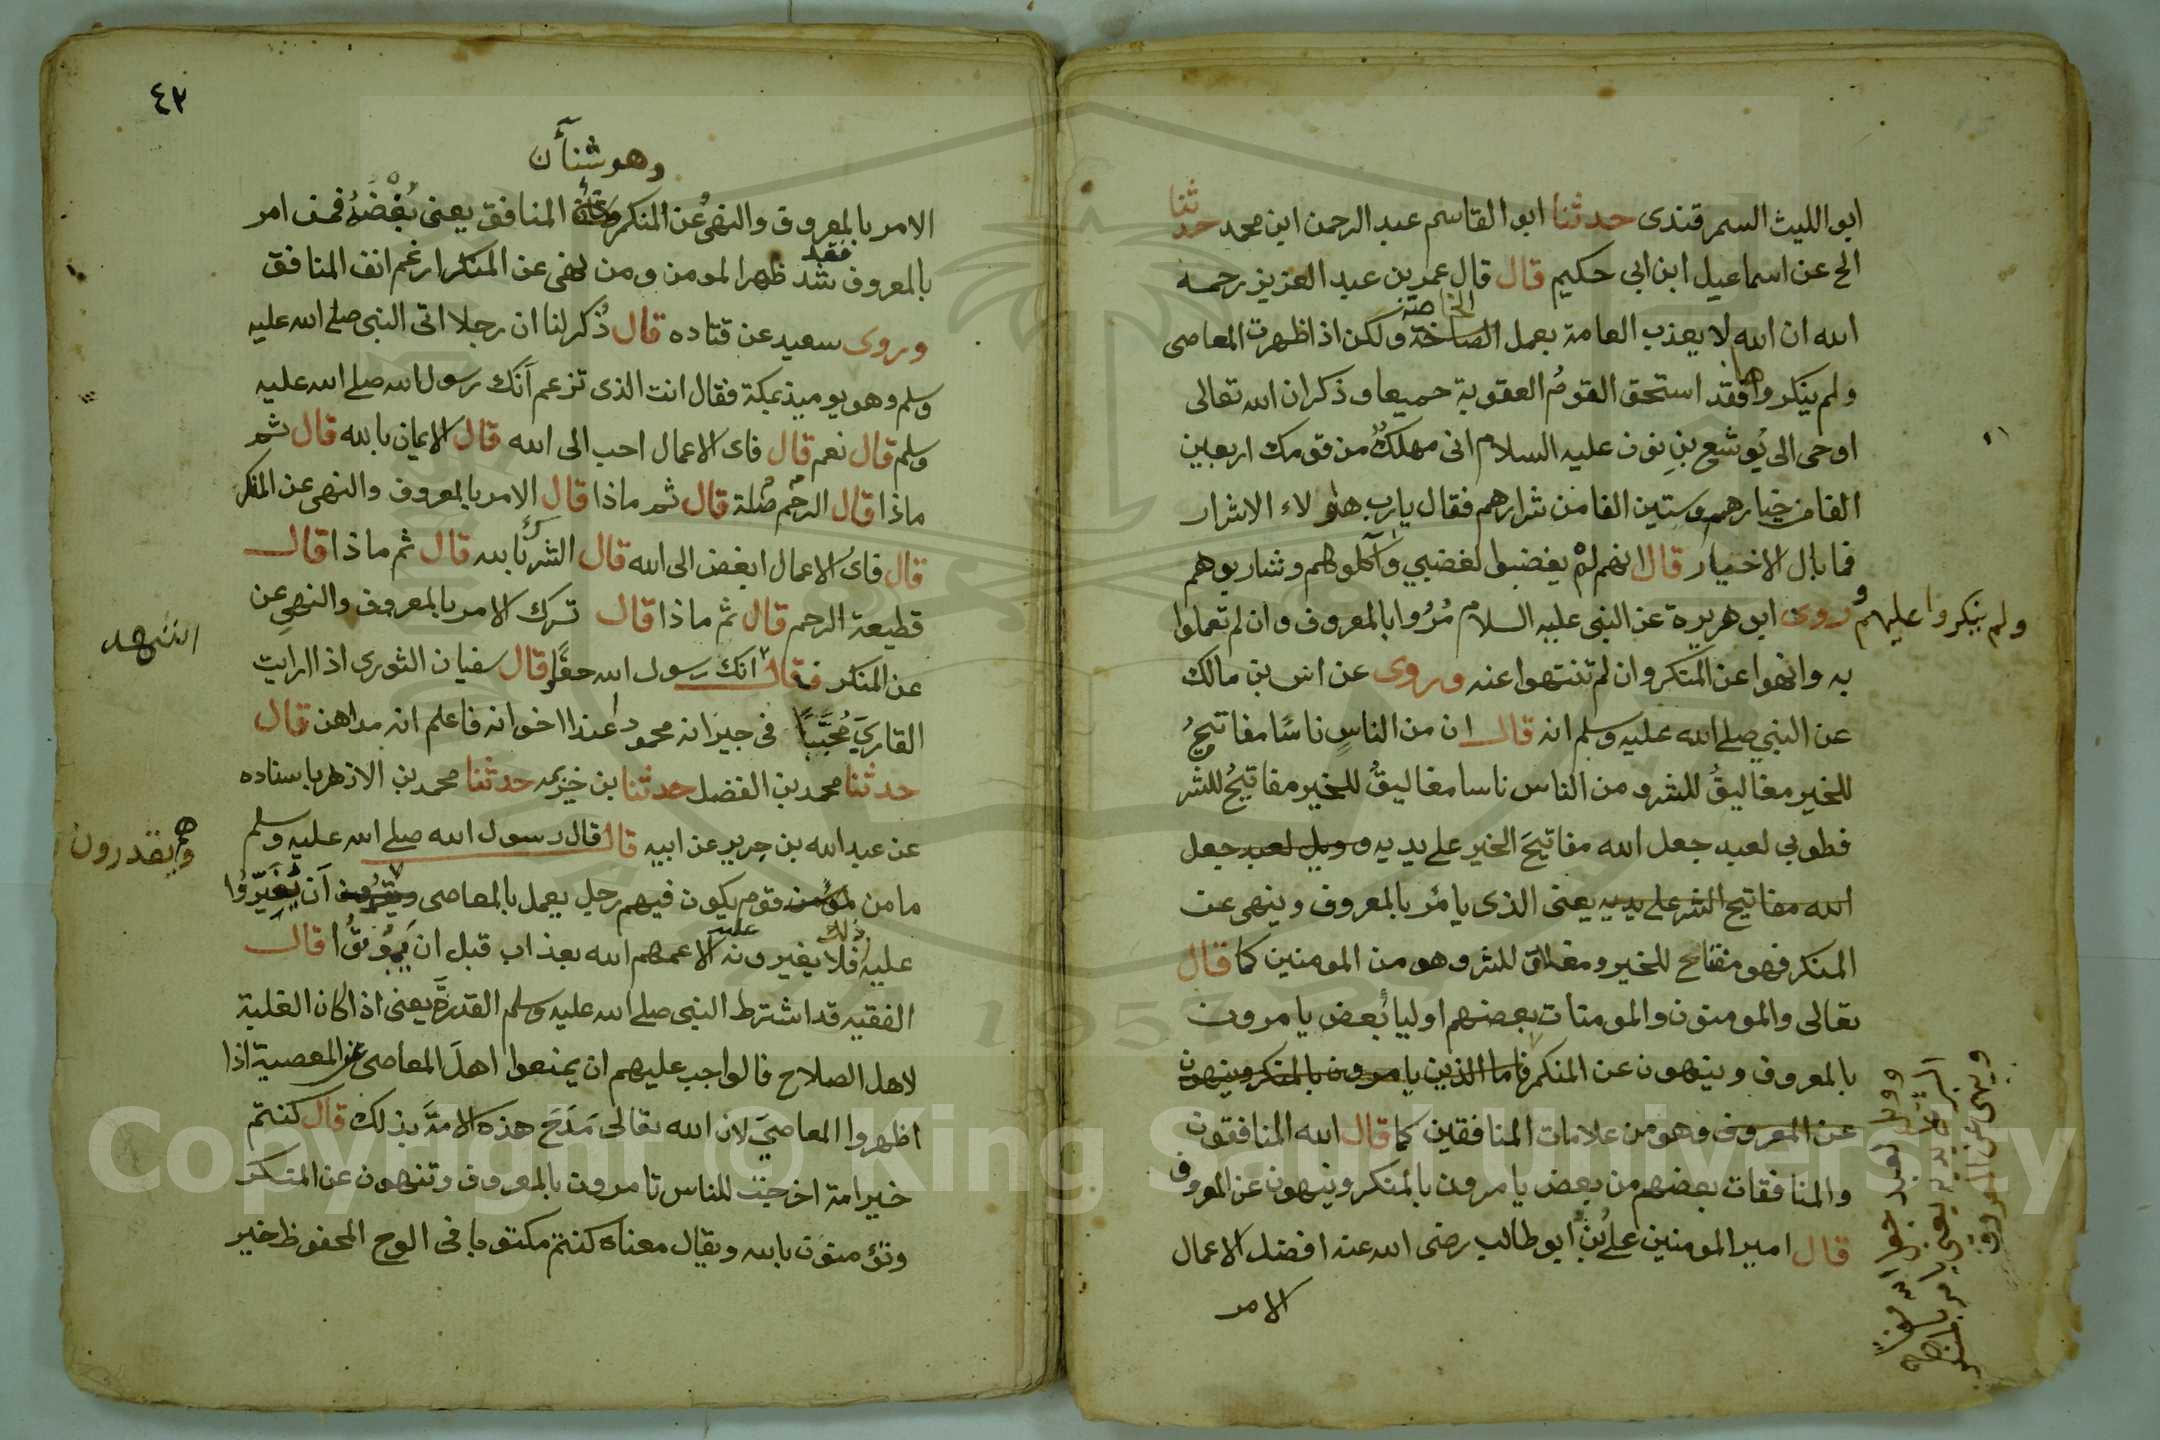 ابو الليث السمرقندى حدثنا ابو القاسم عبد الرحمن ابن محمد حدثنا
الخ عن اسماعيل ابن ابى حكيم قال قال عمر بن عبد العزيز رحمه
الله ان الله لا يعذب العامة بعمل الخاصة ولكن اذ اظهرت المعاصى
ولم ينكروا هم فقد استحق القوم العقوبة جميعا وذكر ان الله تعالى
اوحى الى يوشع بن نون عليه السلام انى مهلك من قومك اربعين
الفا من خيارهم وستين الفا من شرارهم فقال يارب هؤلاء الاشرار
فما بال الاخيار قال انهم لم يغضبوا لغضبي وآكلوهم وشاربوهم
ولم ينكروا عليهم
وروى ابو هريرة عن النبى عليه السلام مُرُوا بالمعروف وان لم تعملوا
به وانهوا عن المنكر وان لم تنتهوا عنه وروى عن انس بن مالك
عن النبي صلى الله عليه وسلم انه قال ان من الناسِ ناسًا مفاتيحُ
للخير مغاليقُ للشر ومن الناس ناسا مغاليقُ للخير مفاتيحُ للشر
فطوبي لعبد جعل الله مفاتيحَ الخير على يديه وويل لعبد جعل
الله مفاتيح الشر على يديه يعنى الذى يامُر بالمعروف وينهى عن
المنكر فهو مفتاح للخير ومغلاق للشر وهو من المومنين كما قال
تعالى والمومنون والمومنات بعضهم اوليا بعض يامرون
بالمعروف وينهون عن المنكر فاما الذين يامرون بالمنكر وينهون
عن المعروف فهو من علامات المنافقين كما قال الله المنافقون
والمنافقات بعضهم من بعض يامرون بالمنكر وينهون عن المعروف
قال امير المومنين على بن ابو طالب رضى الله عنه افضل الاعمال
الامر
وويل لعبد جعل الله مفاتيح
الشر على يديه يعنى يامر بالمنكر
وينهى عن المعروف
٤٢
وهو شنآن
الامر بالمعروف والنهى عن المنكر المنافق يعنى بُغْضَهُ فمن امر
بالمعروف فقد شد ظهر المومن ومن نهى عن المنكر ارغم انف المنافق
وروى سعيد عن قتاده قال ذُكر لنا ان رجلا اتى النبى صلى الله عليه
وسلم وهو يوميذ بمكة فقال انت الذى تزعم اَنّك رسول الله صلى الله عليه
وسلم قال نعم قال فاى الاعمال احب الى الله قال الايمان بالله قال ثم
ماذا قال الرحم صلة قال ثم ماذا قال الامر بالمعروف والنهى عن المنكر
قال فاى الاعمال ابغض الى الله قال الشرك بالله قال ثم ماذا قال
قطيعة الرحم قال ثم ماذا قال ترك الامر بالمعروف والنهى عن
عن المنكر فقال انك رسول الله حقًا وقال سفيان الثورى اذا رايت
اشهد
القارىَ مُحَبَّبًا فى جيرانه محمود عند اخوانه فاعلم انه مداهن قال
حدثنا محمد بن الفضل حدثنا بن خزيمه حدثنا محمد بن الازهر باسناده
عن عبد الله بن جرير عن ابيه قال قال رسول الله صلى الله عليه وسلم
وهم يقدرون
ما من قوم يكون فيهم رجل يعمل بالمعاصى ان يُغَيِّرُوا
عليه ذلك فلا يغيرونه عليه الا عمهم الله بعذاب قبل ان يموتوا قال
الفقيه قد اشترط النبى صلى الله عليه وسلم القدرةَ يعنى اذا كان الغلبة
لاهل الصلاح فالواجب عليهم ان يمنعوا اهلَ المعاصى عن المعصية اذا
اظهروا المعاصيَ لان الله تعالى مَدَحَ هذه الامةَ بذلك قال كنتم
خير امة اخرجت للناس تامرون بالمعروف وتنهون عن المنكر
وتؤمنون بالله ويقال معناه كنتم مكتوبا فى الوح المحفوظ خير
Copyright © King Saud University
1957